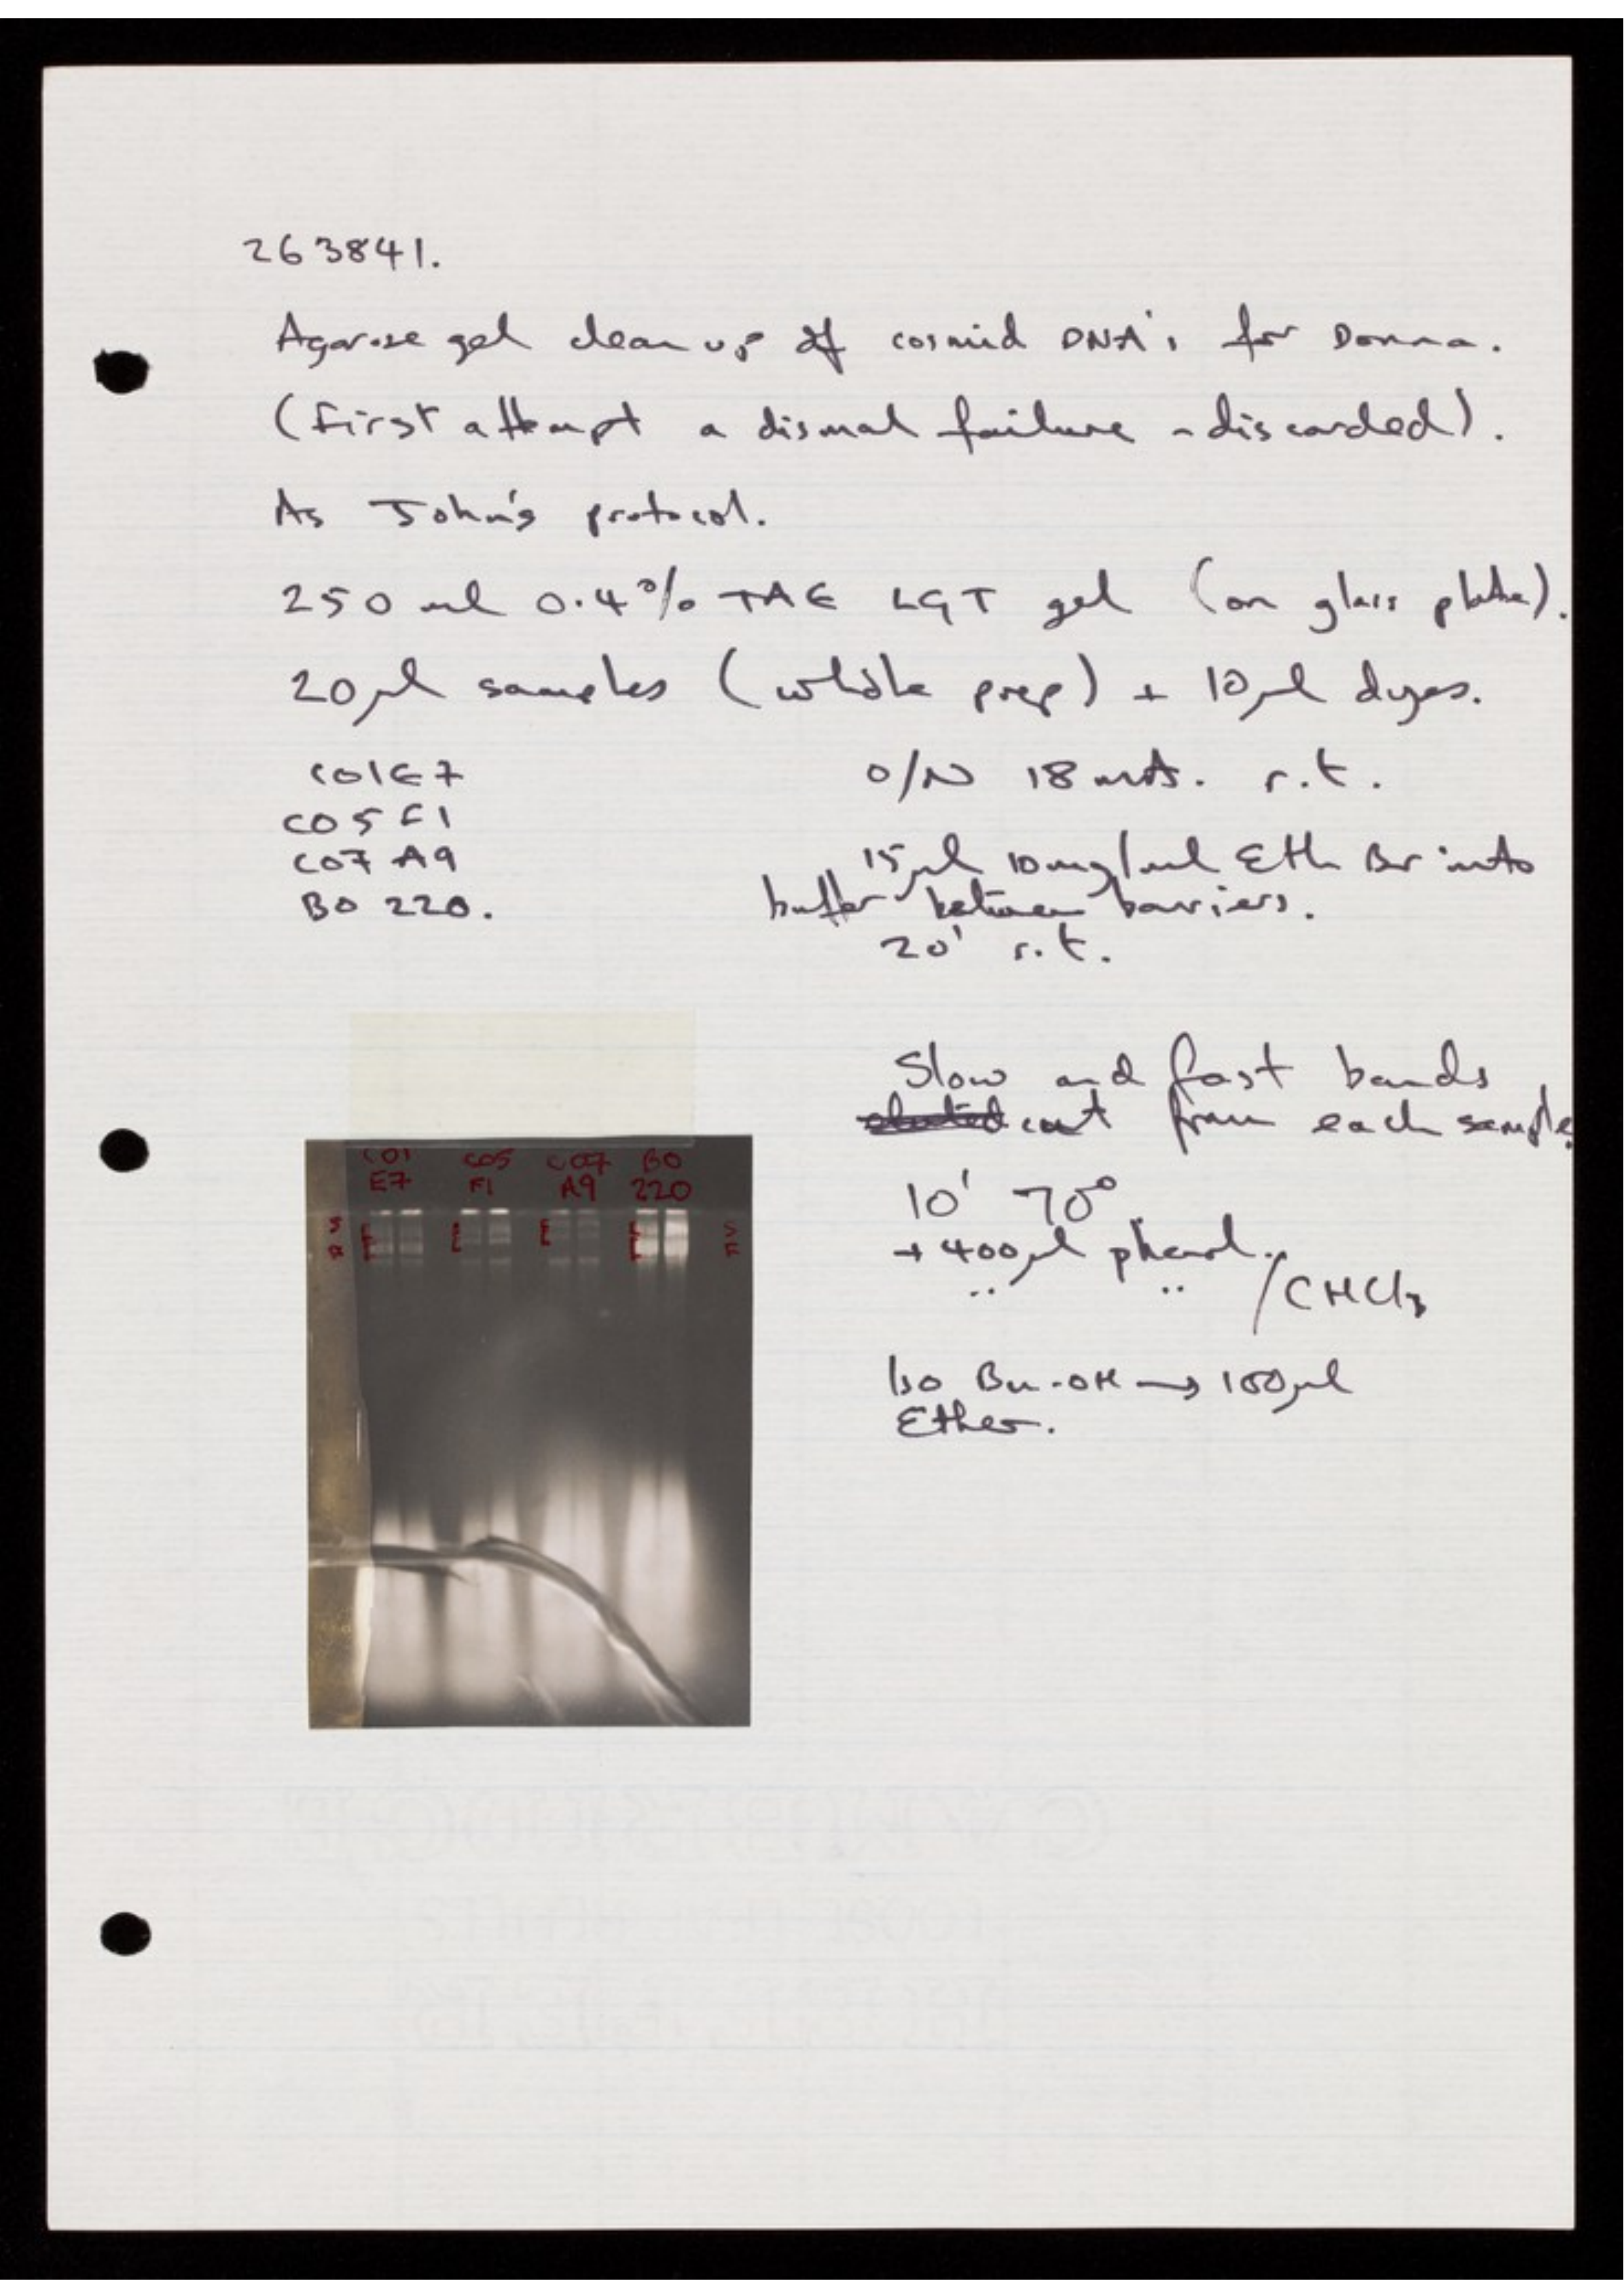 263841.
Agarose gel clean up of cosmid DNA's for Donna.
(First attempt a dismal failure - discarded).
As John's protocol.
250 ml 0.4% TAE LGT gel (on glass plate).
20µl samples (whole prep) + 10µl dyes.
C01E7
C05F1
C07A9
B0220.
O/N 18 mA. r.t.
15µl 10mg/ml Eth Br into
buffer between barriers.
20' r.t.
Slow and fast bands
cut from each sample.
10' 70°
+ 400µl phenol.
.. .. /CHCl3
Iso Bu-OH → 100µl
Ether.
C01 C05 C07 B0
E7 F1 A9 220
S S
F F